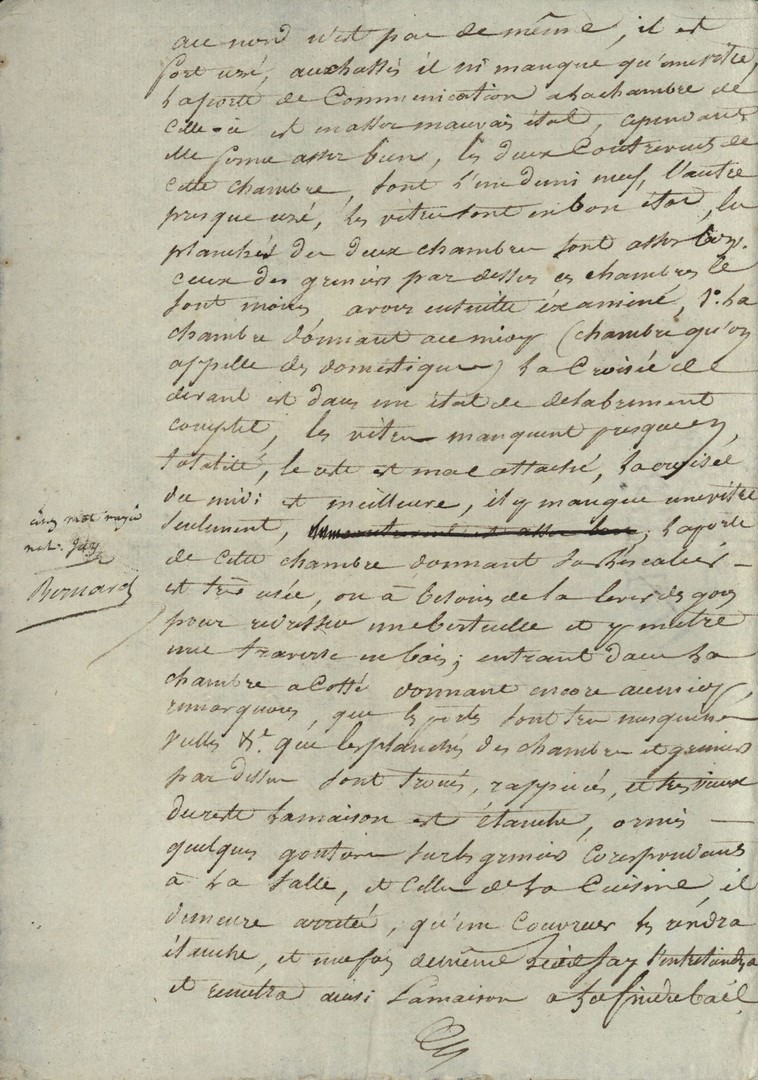 au nord n'est pas de même, il est
fort usé, aux chassis il ni manque qu'une vitre,
La porte de Communication a la chambre de
Celle-ci est en asses mauvais état, cependant
elle ferme asses bien, les deux Contrevents de
cette chambre, sont l'un demi neuf, l'autre
presque usé, les vitres sont en bon état, les
planchés des deux chambres sont asses bons.
ceux des greniers par dessus ces chambres le
sont moins, avons ensuite éxaminé, 1.º La
chambre donnant au midy (chambre qu'on
appelle des domestiques) La Croisée de
devant est dans un état de délabrement
complet, les vitres manquent presque en
totalité, le reste est mal attaché, La croisée
du midi est meilleure, il y manque une vitre
seulement, ; La porte
de cette chambre donnant sur l'escalier –
est très usée, on à besoin de la lever des gons
pour redresser une bertuelle et y mettre
une traverse en bois; entrant dans La
chambre a Cotté donnant encore au midy,
remarquons, que les portes sont très mesquines
vielles &.ª que les planchés des chambres et greniers
par dessus sont troués, rappiécés, et tres vieux
du reste La maison est étanche, ormis –
quelques goutières sur les greniers Corespondants
à La Salle, et Celle de La Cuisine, il
demeure arrêté, qu'un Couvreur les rendra
étanche, et une fois de même Jay l'entretiendra
et remetra ainsi La maison a La fin du bail
cinq mots rayés
nuls. Jay
Bernard